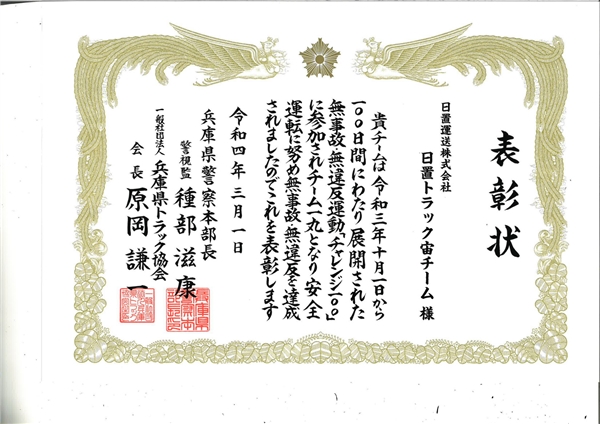 表彰状
日置運送株式会社
日置トラック宙チーム 様
貴チームは令和三年十月一日から
一〇〇日間にわたり展開された
無事故・無違反運動「チャレンジ一〇〇」
に参加されチーム一丸となり安全
運転に努め無事故・無違反を達成
されましたのでこれを表彰します
令和四年三月一日
兵庫県警察本部長
警視監 種部滋康
一般社団法人 兵庫県トラック協会
会長 原岡謙一